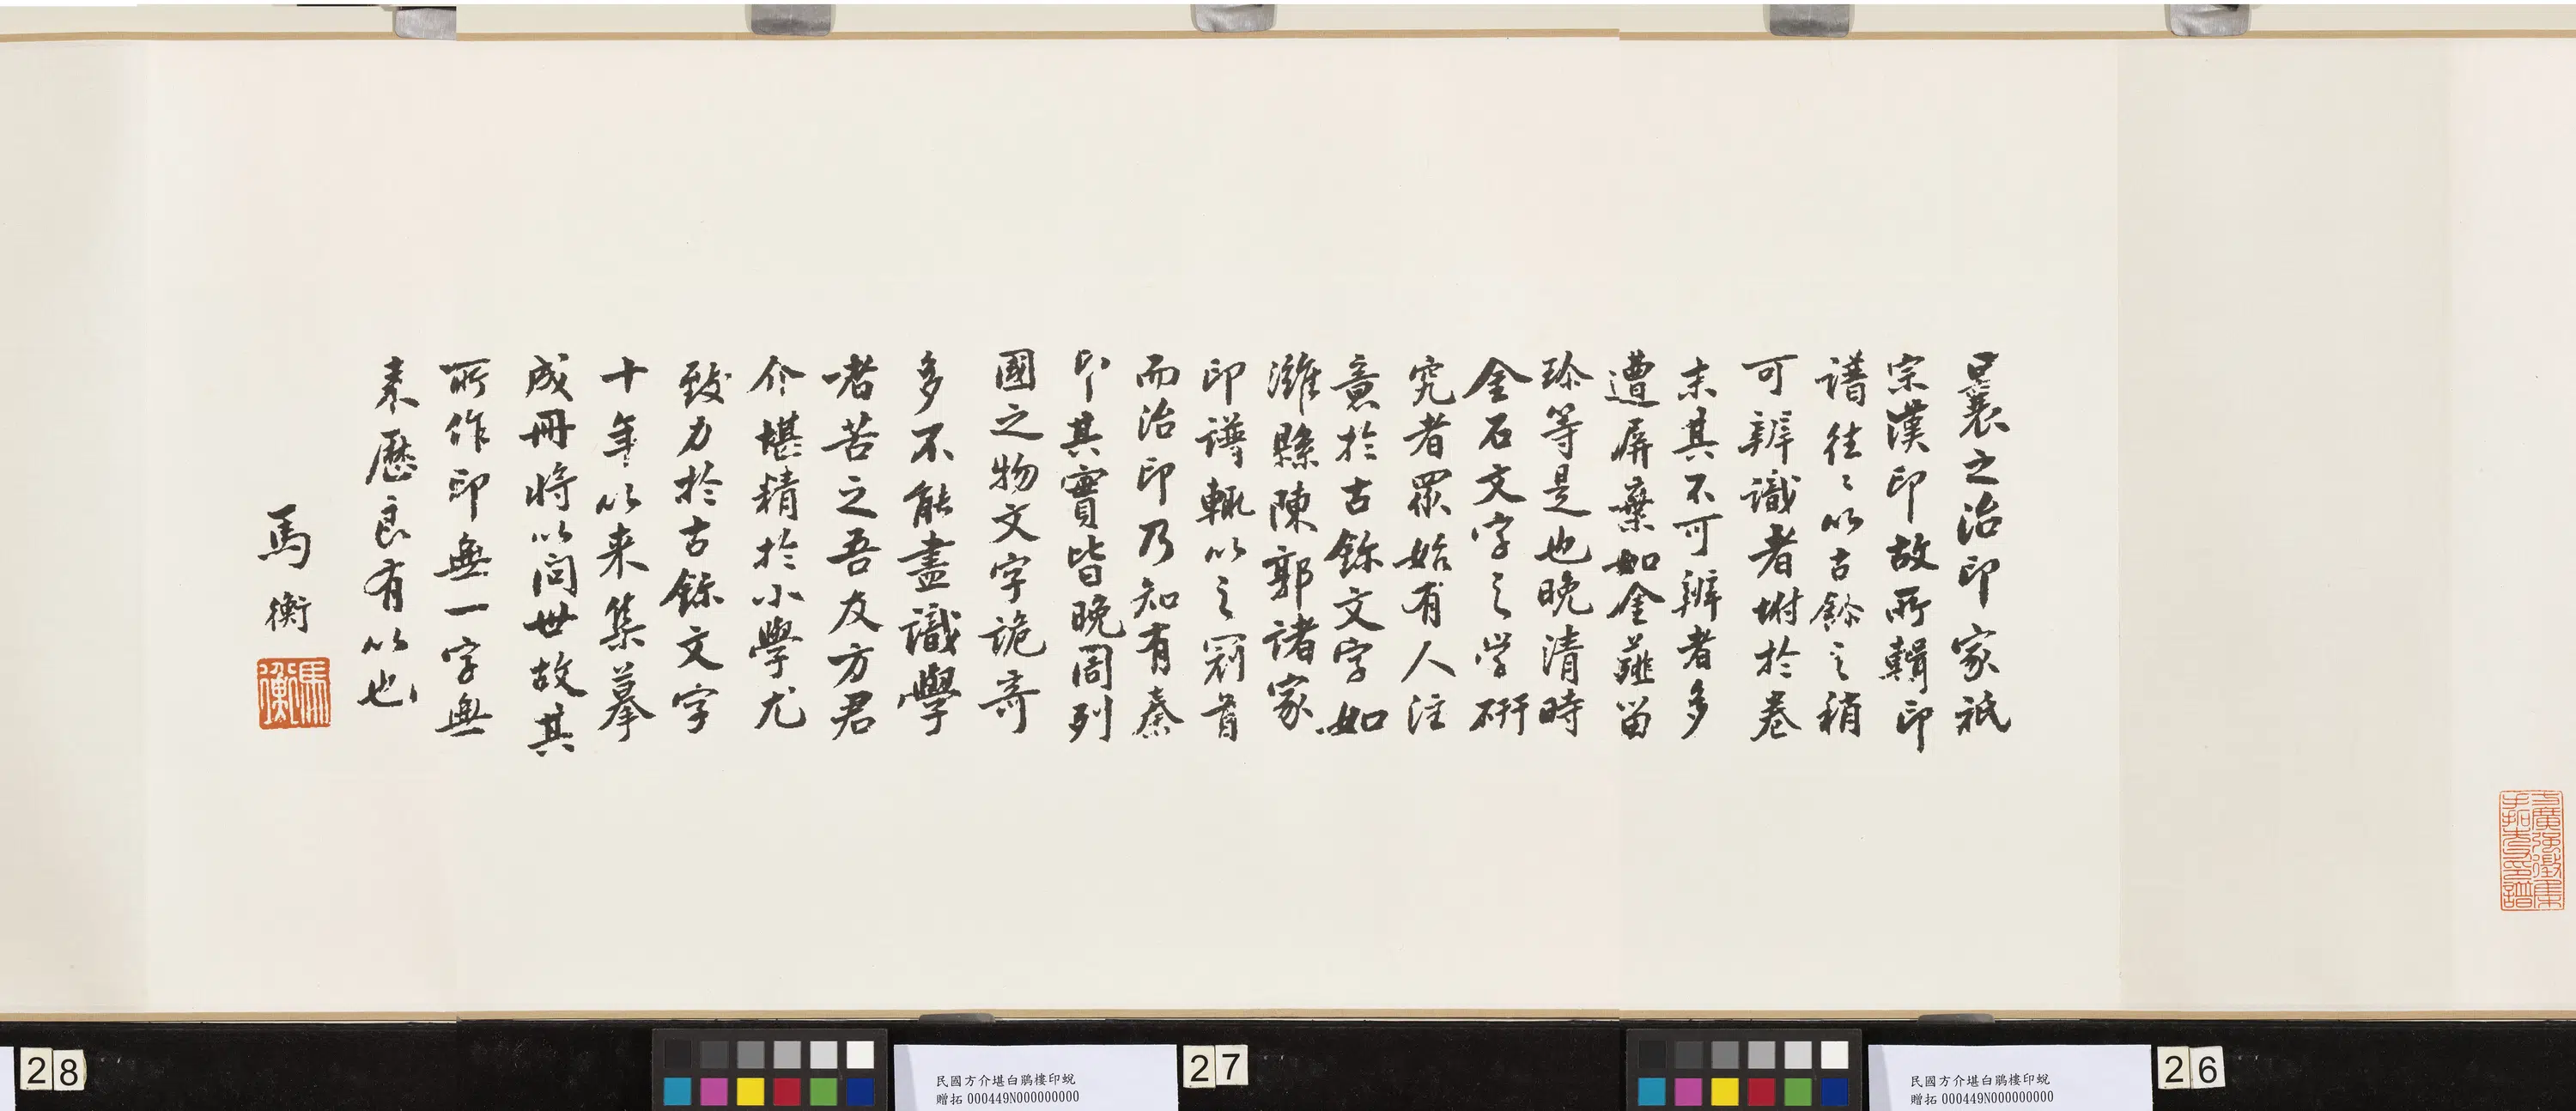 曩之治印家祇
宗漢印故所輯印
譜往〻以古鉨之稍
可辨識者坿於卷
末其不可辨者多
遭屏棄如金薤留
珍等是也晚清時
金石文字之学研
究者眾始有人注
意於古鉨文字如
濰縣陳郭諸家
印譜輒以之冠首
而治印乃知有秦
印其實皆晚周列
國之物文字詭奇
多不能盡識學
者苦之吾友方君
介堪精於小學尤
致力於古鉨文字
十年以来集摹
成冊將以問世故其
所作印無一字無
来歷良有以也
馬衡
馬衡
方廣強徵集
手拓方氏印譜
28
27
26
民國方介堪白鵑樓印蛻
贈拓 000449N000000000
民國方介堪白鵑樓印蛻
贈拓 000449N000000000